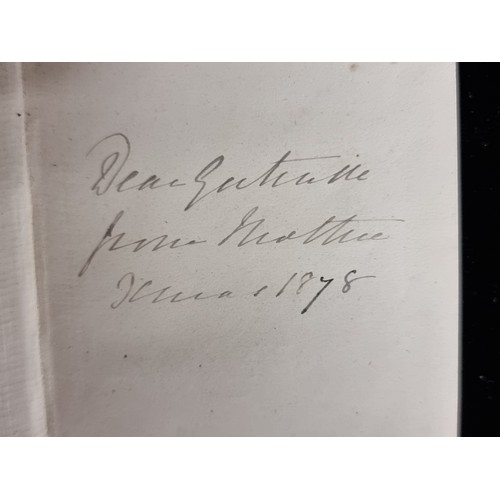 Dear Gertrude
from Mother
Xmas 1878